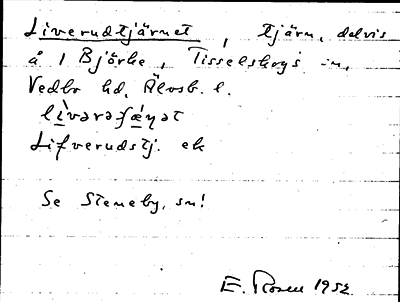 Liverudtjärnet, tjärn, delvis
å 1 Björke, Tisselskogs sn,
Vedbo hd, Älvsb. l.
Lifverudstj. ek
Se Steneby, sn!
E. Rosen 1952